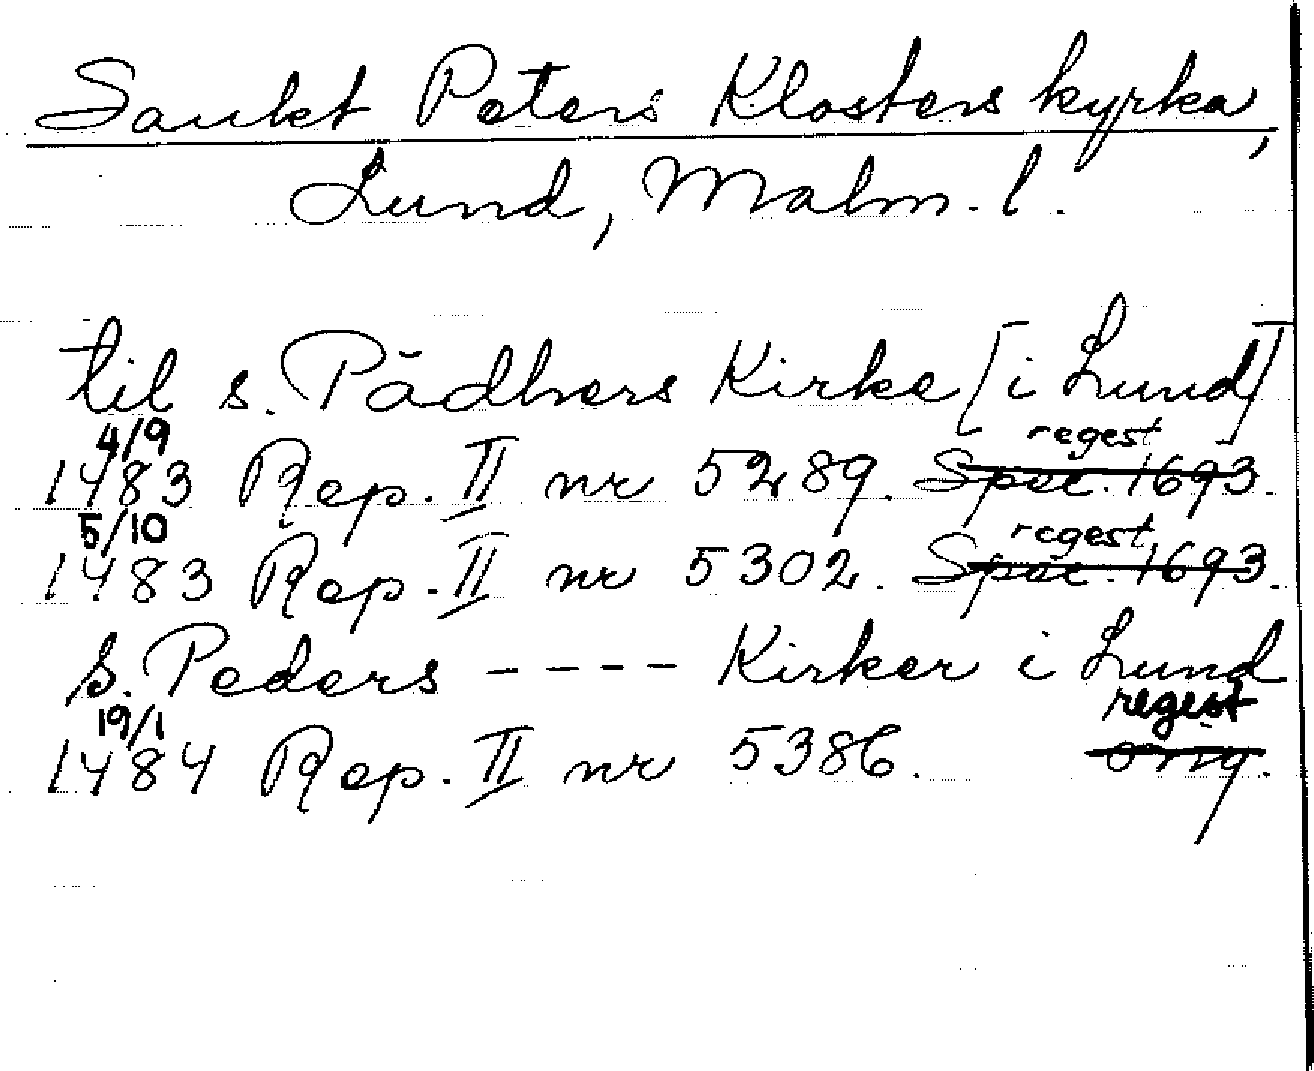 Sankt Peters Klosters kyrka,
Lund, Malm. l.
til s. Pädhers Kirke [i Lund]
4/9 regest
1483 Rep. II nr 5289. Spec. 1693.
5/10 regest
1483 Rep. II nr 5302. Spec. 1693.
s. Peders ---- Kirker i Lund
19/1 regest
1484 Rep. II nr 5386. orig.